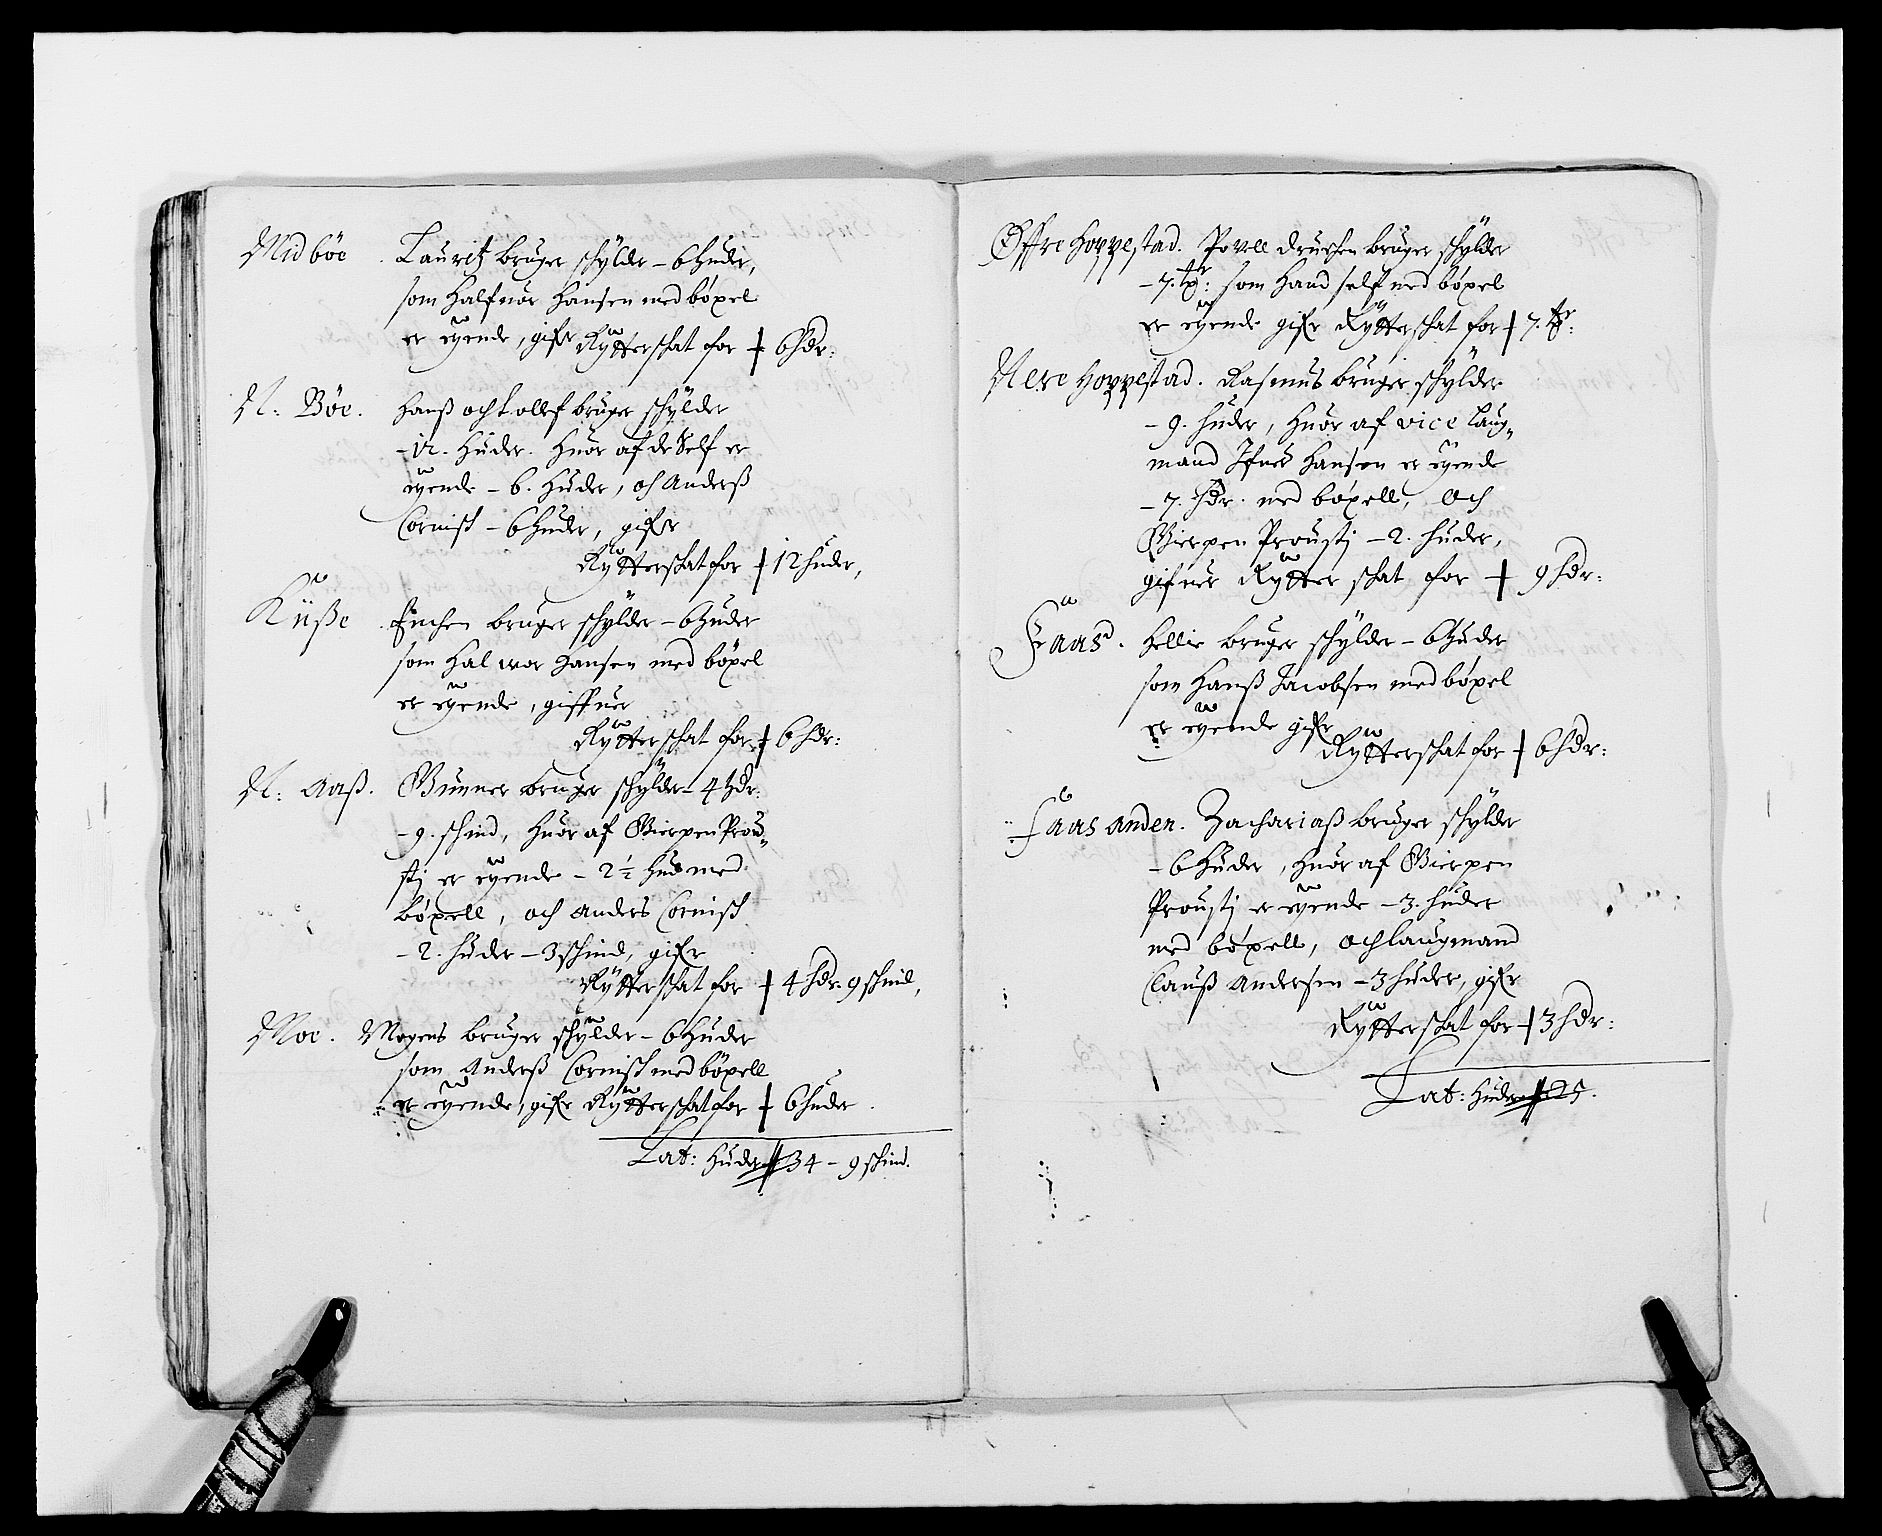 Midböe . Lauritz bruger schylder – 6 huder,
som Halfuor Hansen med böxel
er eyende, gifr Rytterschat for ⸸ 6 hdr:
N: Böe. Hanß och tollef bruger schylder
– 12. Huder. Huor af de Self er
eyende – 6. Huder, och Anderß
Cornisk – 6 huder, gifr
Rytterschat for ⸸ 12 huder,
Kiiße . bruger schylder – 6 huder
som Halwor Hansen med böxel
er eyende, giffuer
Rytterschat for ⸸ 6 hdr:
N: Aaß. Gunner bruger schylder – 4 hdr:
– 9. schind, Huor af Gierpen Prou„
stj er eyende – 2 ½ hud med
böxell, och Anders Cornisk
– 2. huder – 3 schind, gifr
Rytterschat for ⸸ 4 hdr: 9 schind,
Moe. Mogens bruger schylder – 6 huder
som Anderß Cornisk med böxell
er eyende, gifr Rytterschat for ⸸ 6 huder
Lat: Huder 34 – 9 schind.
Öffre Hoppestad. Povell bruger schylder
– 7. hdr: som Hand self med böxel
er eyende gifr Rytterschat for ⸸ 7. hdr:
Nere Hoppestad. Rasmus bruger schylder
– 9. huder, Huor af vice Laug„
mand Ifuer Hansen er eyende
– 7. hdr. med böxell, och
Gierpen Proustj – 2. huder,
gifuer Rytter schat for ⸸ 9 hdr:
Faas. Hellie bruger schylder – 6 huder
som Hanß Jacobsen med böxel
er eyende gifr
Rytterschat for ⸸ 6 hdr:
Faas anden. Zachariaß bruger schylder
– 6 Huder, Huor af Gierpen
Proustj er eyende – 3. huder
med böxell, och laugmand
Clauß Andersen – 3 huder, gifr
Rytterschat for ⸸ 3 hdr:
Lat: Huder 25.